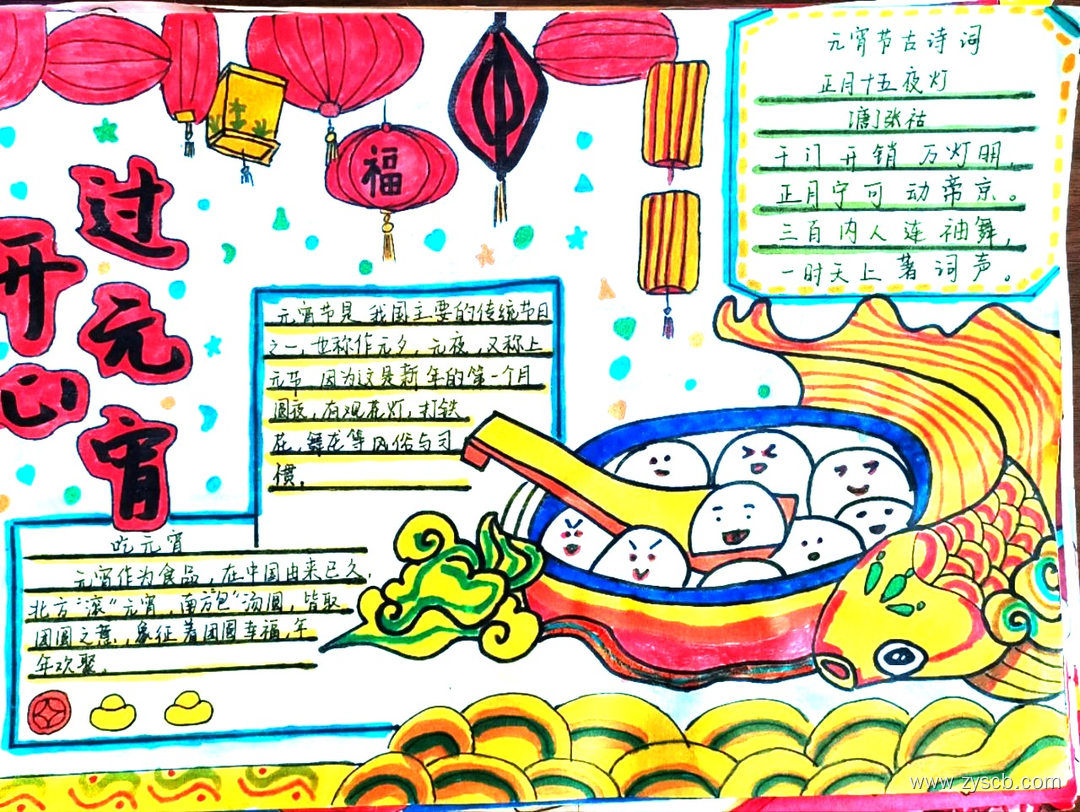 开心
过元宵
福
元宵节古诗词
正月十五夜灯
[唐]张祜
千门开锁万灯明，
正月宁可动帝京。
三百内人连袖舞，
一时天上著词声。
元宵节是我国主要的传统节日
之一，也称作元夕，元夜，又称上
元节 因为这是新年的第一个月
圆夜，有观花灯，打铁
花，舞龙等风俗与习
惯。
吃元宵
元宵作为食品，在中国由来已久，
北方"滚"元宵，南方"包"汤圆，皆取
团圆之意，象征着团圆幸福，年
年欢聚。
www.zyscb.com